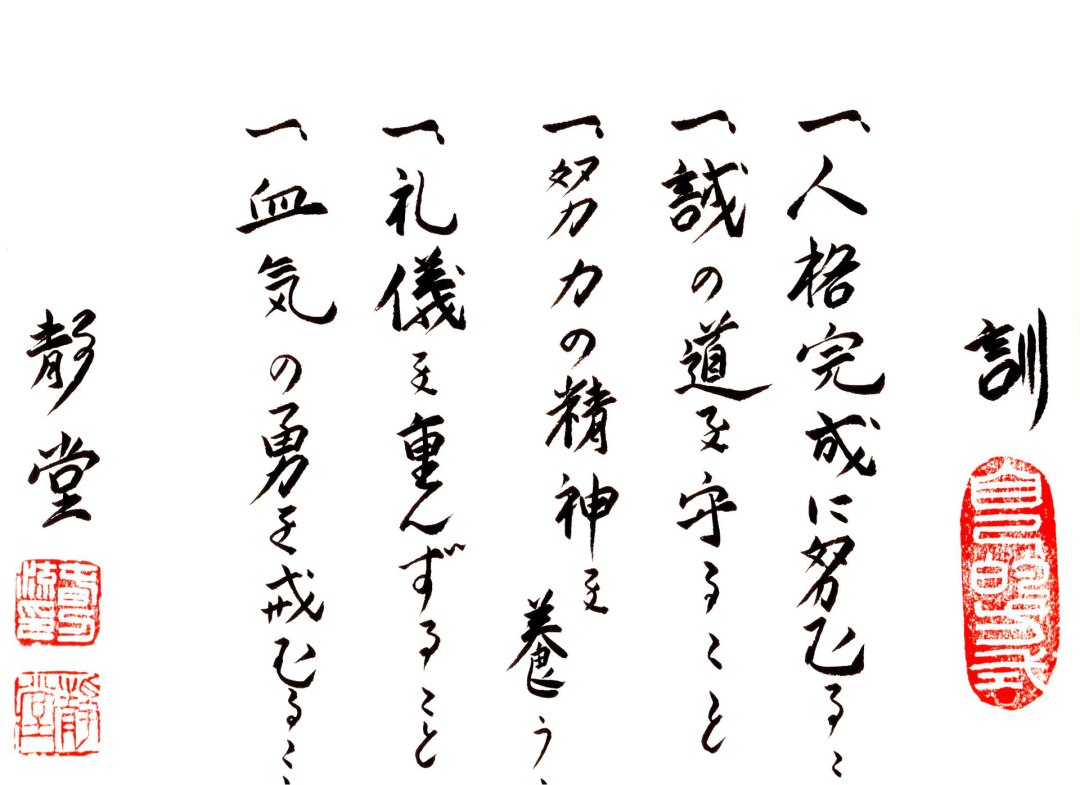 訓
一、人格完成に努むるこ
一、誠の道を守ること
一、努力の精神を養う
一、礼儀を重んずること
一、血気の勇を戒むるこ
静堂